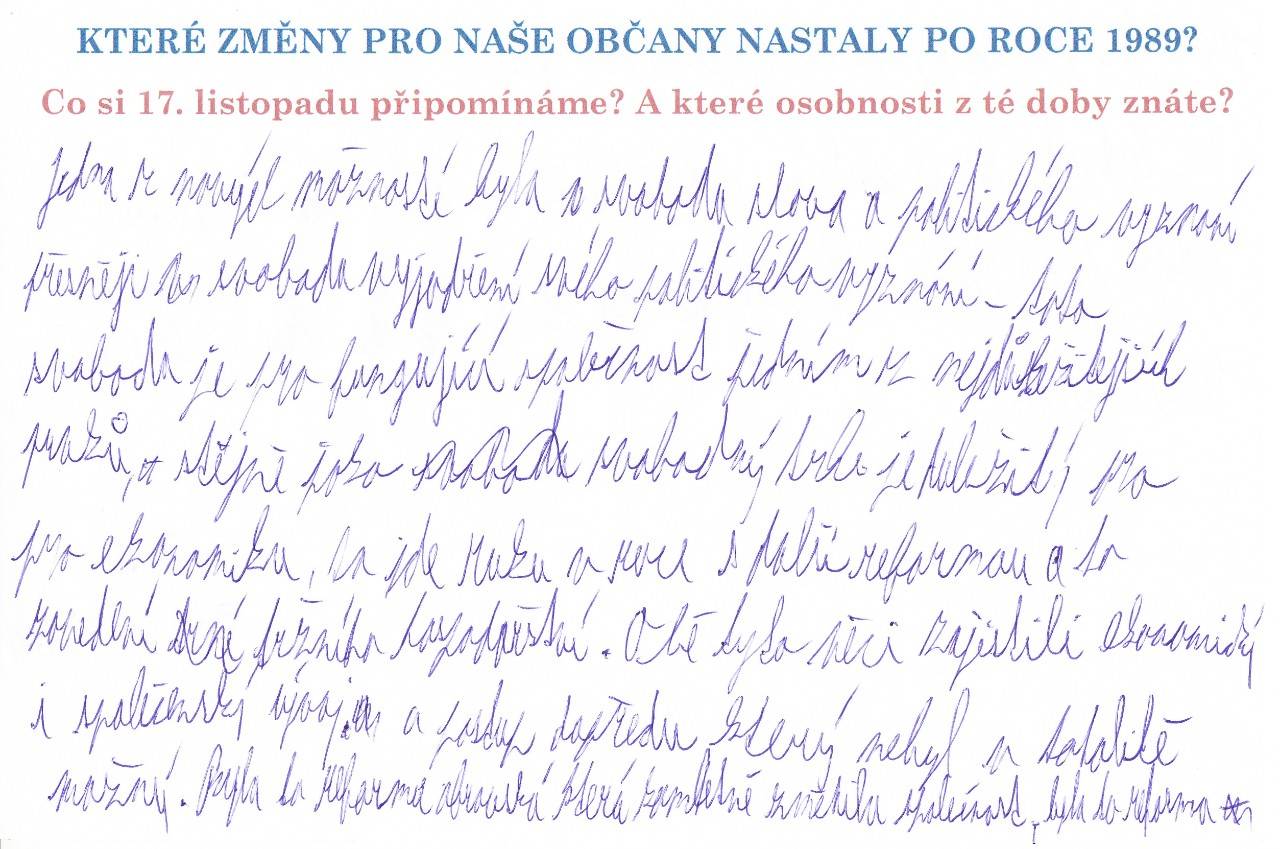 KTERÉ ZMĚNY PRO NAŠE OBČANY NASTALY PO ROCE 1989?
Co si 17. listopadu připomínáme? A které osobnosti z té doby znáte?
Jedna z nových možností byla svoboda slova a politického vyznání
přesněji svoboda vyjadření svého politického vyznání – tato
svoboda je pro fungující společnost jedním z nejdůležitějších
prvků, stejně jako svobodný trh je důležitý pro
pro ekonomiku, to jde ruku v ruce s další reformou a to
zavedení tržního hospodářství. Obě tyto věci zajistili ekonomický
i společenský vývoj a postup dopředu který nebyl v totalitě
možný. Byla to reforma obrovská která kompletně změnila společnost, byla to reforma